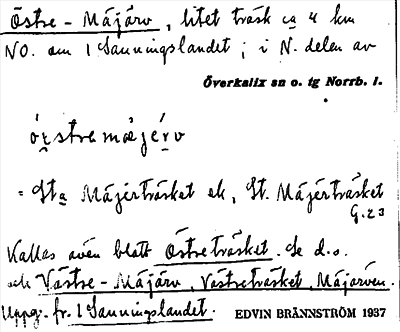 Östre-Måjärv, litet träsk ca 4 km
NO. om 1 Sanningslandet; i N. delen av
Överkalix sn o. tg Norrb. l.
= Sta Måjärträsket ek, St. Måjärträsket
G. 23
Kallas även blott Östreträsket. Se d.o.
och Västre-Måjärv, Västreträsket, Måjärven.
Uppg. fr. 1 Sanningslandet. EDVIN BRÄNNSTRÖM 1937